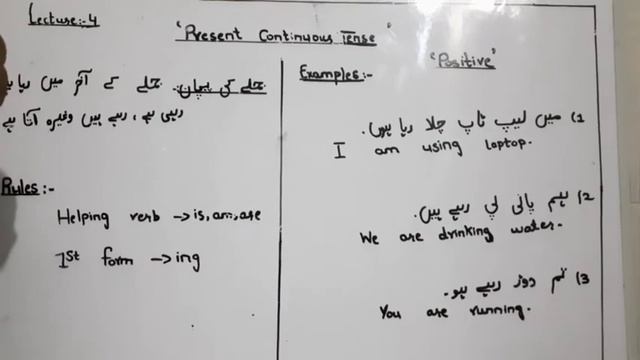 Lecture:-4
'Present Continuous Tense'
جملے کی پہچان:- جملے کے آخر میں رہا
رہی ہے، رہے ہیں وغیرہ آتا ہے
Rules:-
Helping verb -> is, am, are
1st form -> ing
Examples:-
'Positive'
1) میں لیپ ٹاپ چلا رہا ہوں.
I am using laptop.
2) ہم پانی پی رہے ہیں.
We are drinking water.
3) تم دوڑ رہے ہو.
You are running.